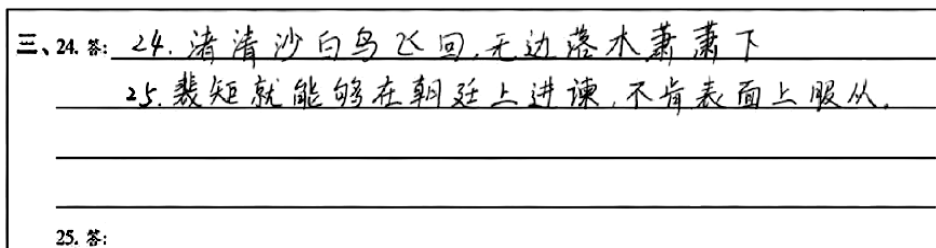 三、24. 答: 24. 渚清沙白鸟飞回,无边落木萧萧下
25. 裴矩就能够在朝廷上进谏,不肯表面上服从。
25. 答: